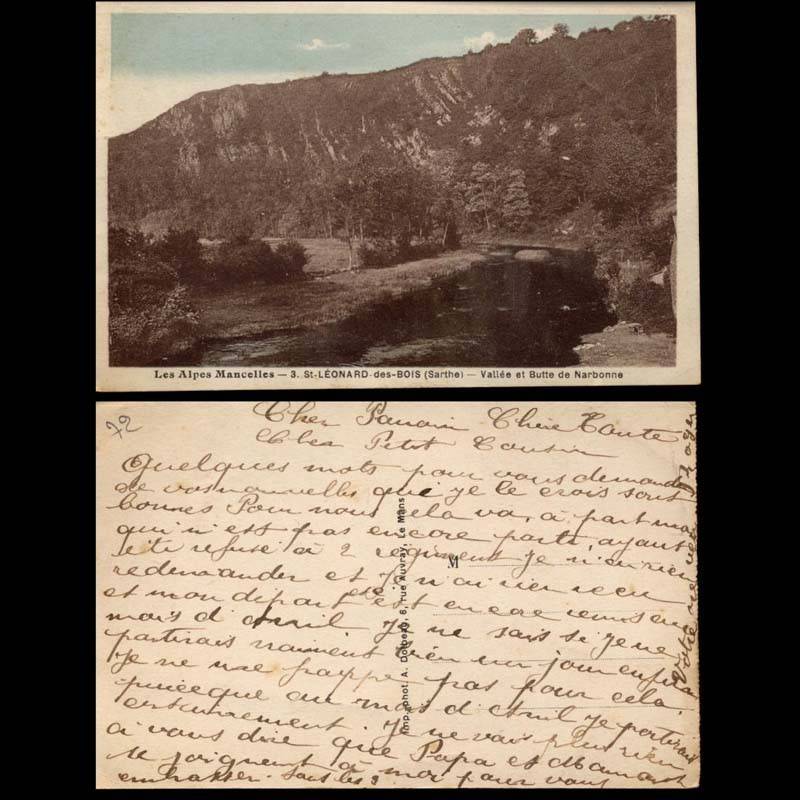 Les Alpes Mancelles — 3. St-LÉONARD-des-BOIS (Sarthe) — Vallée et Butte de Narbonne
72
Cher Parrain Chère Tante
Cher Petit Cousin
Quelques mots pour vous demander
de vos nouvelles qui je le crois sont
bonnes Pour nous cela va, à part moi
qui n'est pas encore parti, ayant
été refusé à 2 regiment je n'en rien
redemander et je n'ai rien recu
et mon départ est encore remis en
mois d'Avril je ne sais si je ne
partirais vraiment bien un jour enfin
Je ne me frappe pas pour cela
puiceque au mois d'Avril je partirais
certainement. Je ne vais plus rien
à vous dire que Papa et Maman
se joignent à moi pour vous
embrasser. tous les 3
Votre neveu Roger
Imp. phot. A. Dolbeau, 6, rue Auvray, Le Mans
M